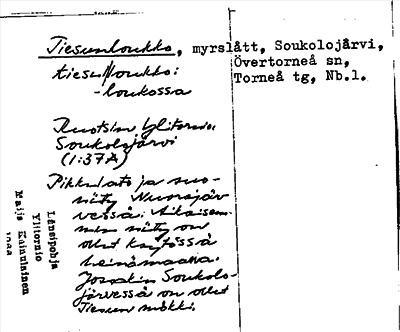 Tiesunloukko, myrslått, Soukolojärvi,
Övertorneå sn,
Torneå tg, Nb.l.
tiesu|loukko:
-loukossa
Ruotsin Ylitornio
Soukolojärvi
(1:37A)
Pikku lato ja suo-
niitty Nuorajär
vessä. Aikaisem-
min niitty on
ollut käytössä
heinämaana.
Jossakin Soukolo-
järvessä on ollut
Tiesun mökki.
Länsipohja
Ylitornio
Maija Kainulainen